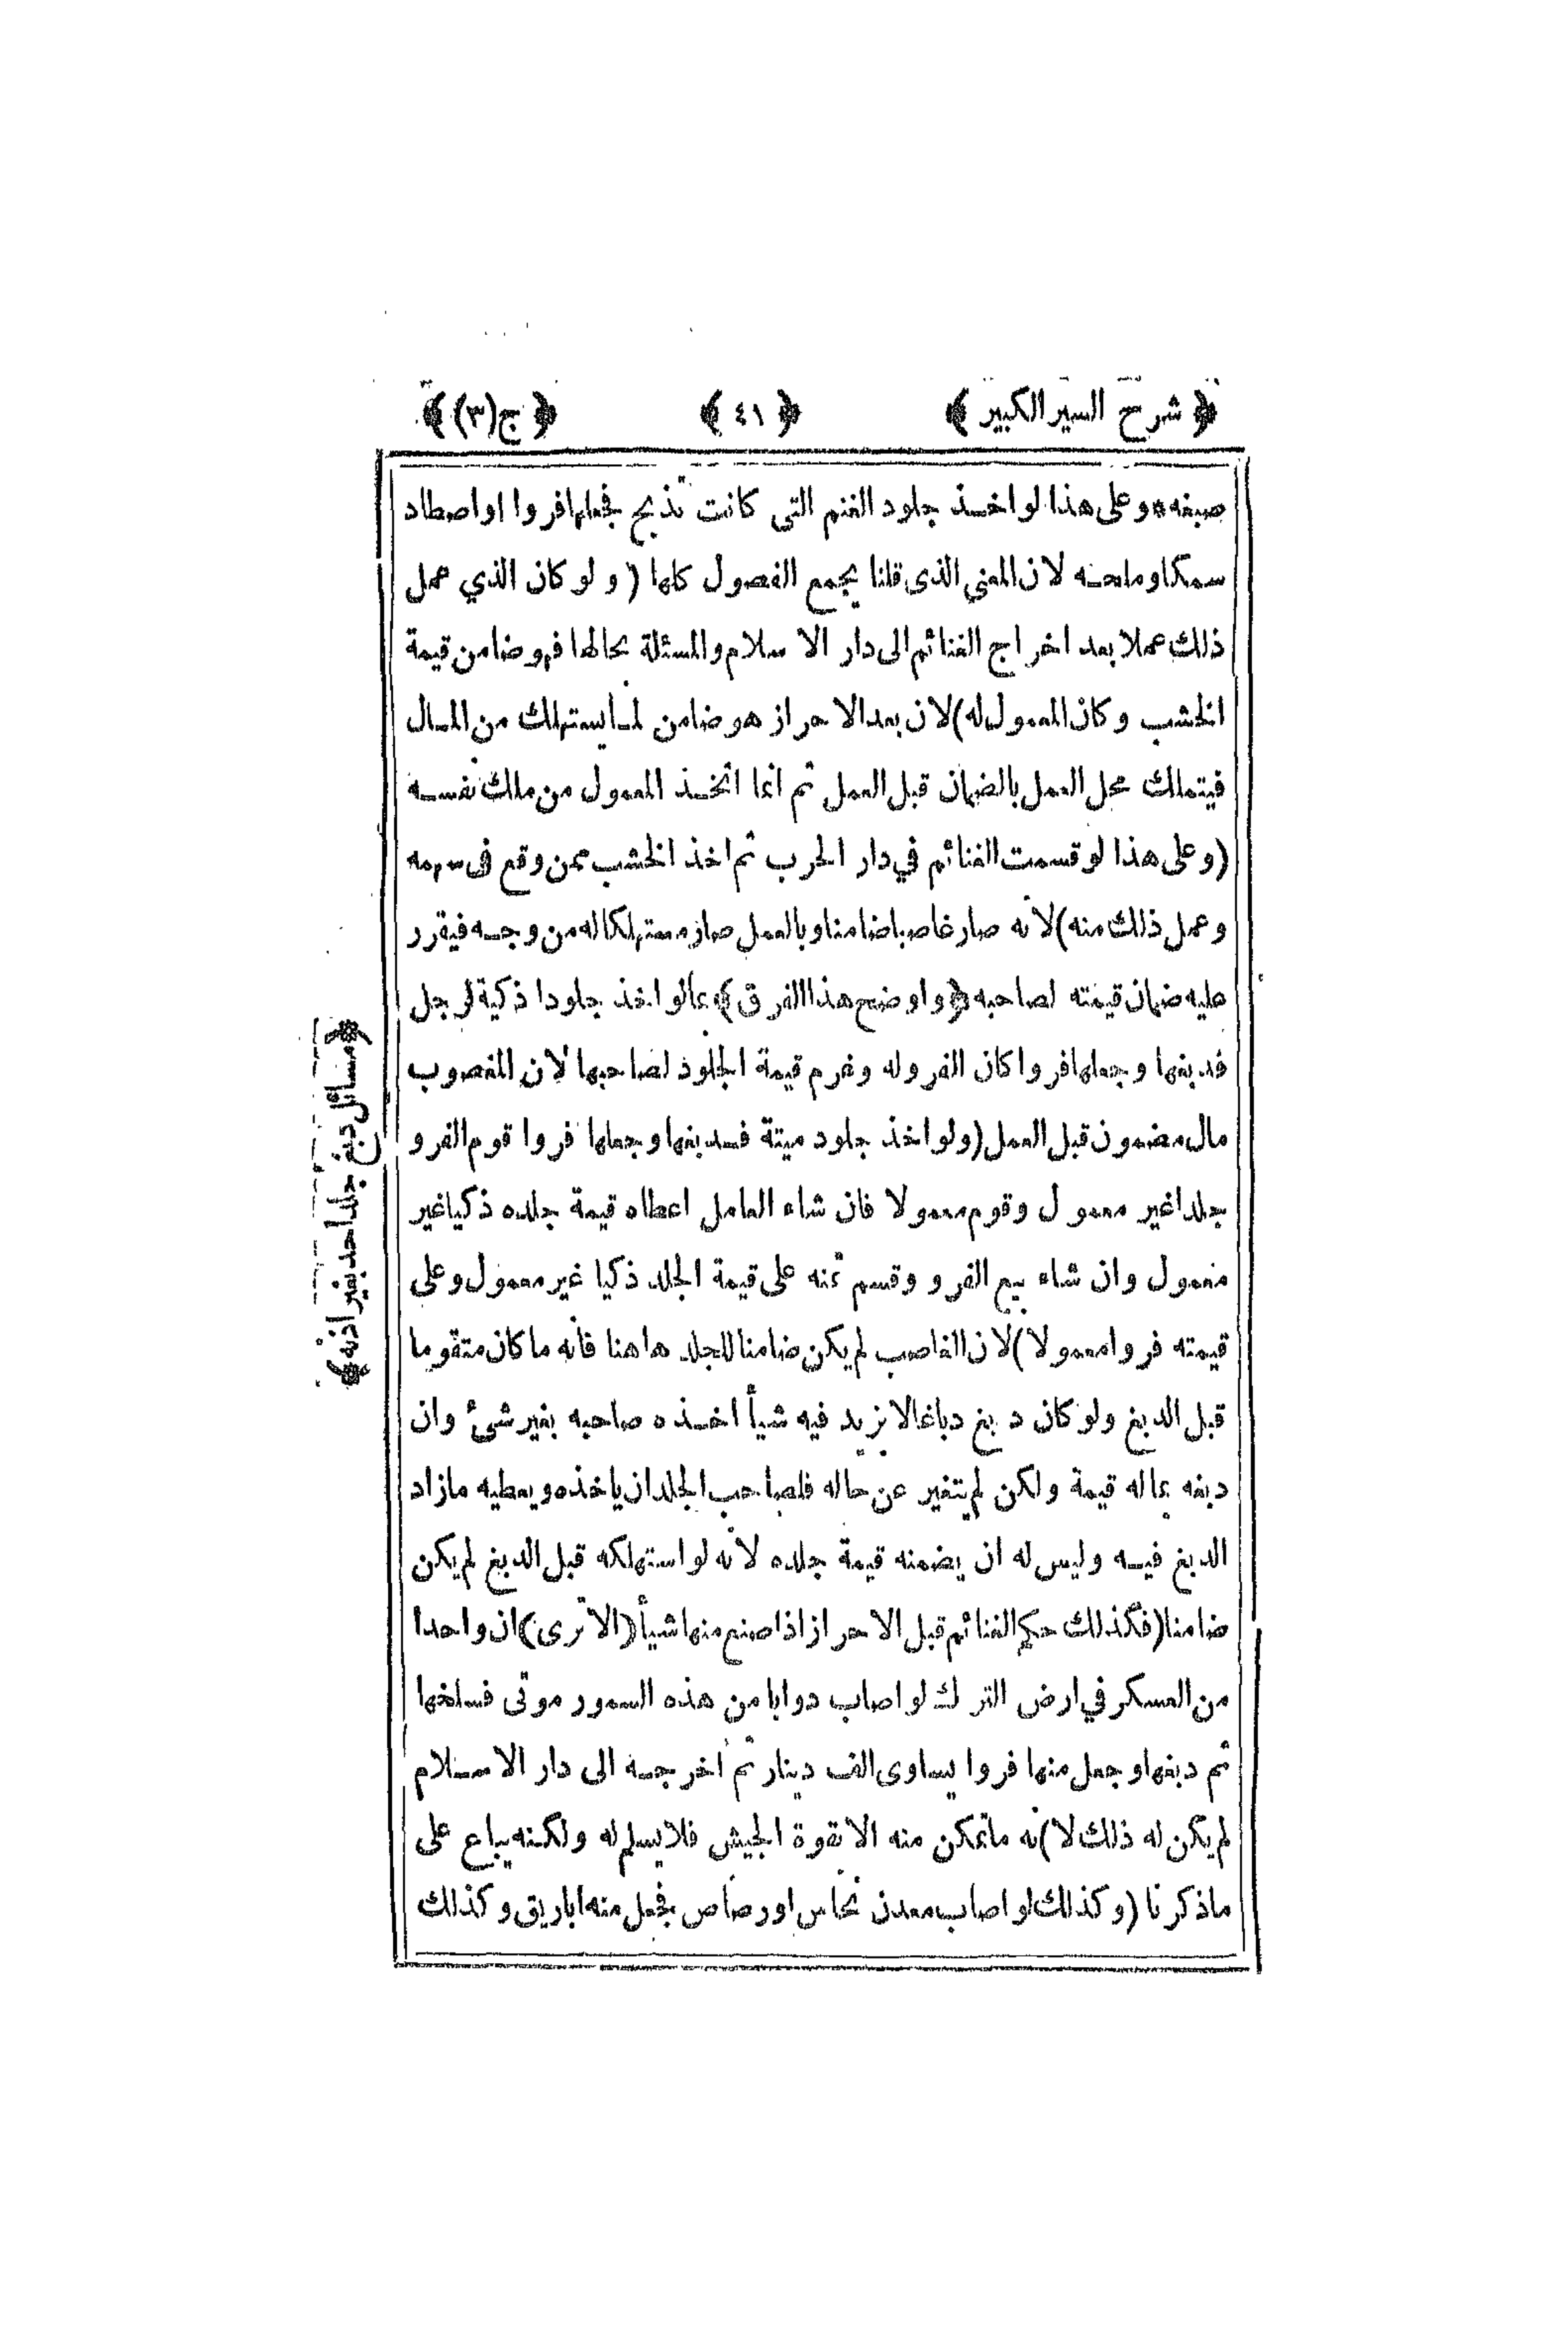 ﴿ شرح السير الكبير ﴾ ﴿ ٤١ ﴾ ﴿ ج(٣) ﴾
صبغه * وعلى هذا لو اخذ جلود الغنم التى كانت تذبح فجعلها فروا او اصطاد
سمكا وملحه لان المعنى الذى قلنا يجمع الفصول كلها ( ولو كان الذي عمل
ذلك عملا بعد اخراج الغنائم الى دار الاسلام والمسئلة بحالها فهو ضامن قيمة
الخشب وكان المعمول له) لان بعد الاحراز هو ضامن لما يستهلك من المال
فيتملك محل العمل بالضمان قبل العمل ثم انما اتخذ المعمول من ملك نفسه
(وعلى هذا لو قسمت الغنائم في دار الحرب ثم اخذ الخشب ممن وقع فى سهمه
وعمل ذلك منه) لانه صار غاصبا ضامنا وبالعمل صار مستهلكا له من وجه فيقرر
عليه ضمان قيمته لصاحبه ﴿واوضح هذا الفرق﴾ بما لو اخذ جلودا ذكية لرجل
فدبغها وجعلها فروا كان الفرو له وغرم قيمة الجلود لصاحبها لان المغصوب
مال مضمون قبل العمل (ولو اخذ جلود ميتة فدبغها وجعلها فروا قوم الفرو
جلدا غير معمول وقوم معمولا فان شاء العامل اعطاه قيمة جلده ذكيا غير
معمول وان شاء بيع الفرو وقسم ثمنه على قيمة الجلد ذكيا غير معمول وعلى
قيمته فروا معمولا) لان الغاصب لم يكن ضامنا للجلد هاهنا فانه ما كان متقوما
قبل الدبغ ولو كان دبغ دباغا لا يزيد فيه شيأ اخذه صاحبه بغير شئ وان
دبغه بماله قيمة ولكن لم يتغير عن حاله فلصاحب الجلد ان ياخذه ويعطيه ما زاد
الدبغ فيه وليس له ان يضمنه قيمة جلده لانه لو استهلكه قبل الدبغ لم يكن
ضامنا (فكذلك حكم الغنائم قبل الاحراز اذا صنع منها شيأ (الا ترى) ان واحدا
من العسكر في ارض الترك لو اصاب دوابا من هذه السمور موتى فسلخها
ثم دبغها وجعل منها فروا يساوى الف دينار ثم اخرجه الى دار الاسلام
لم يكن له ذلك لا)نه ما تمكن منه الا بقوة الجيش فلا يسلم له ولكنه يباع على
ما ذكرنا (وكذلك لو اصاب معدن نحاس او رصاص فجعل منه اباريق وكذلك
﴿مسائل دبغ جلد احد بغير اذنه﴾